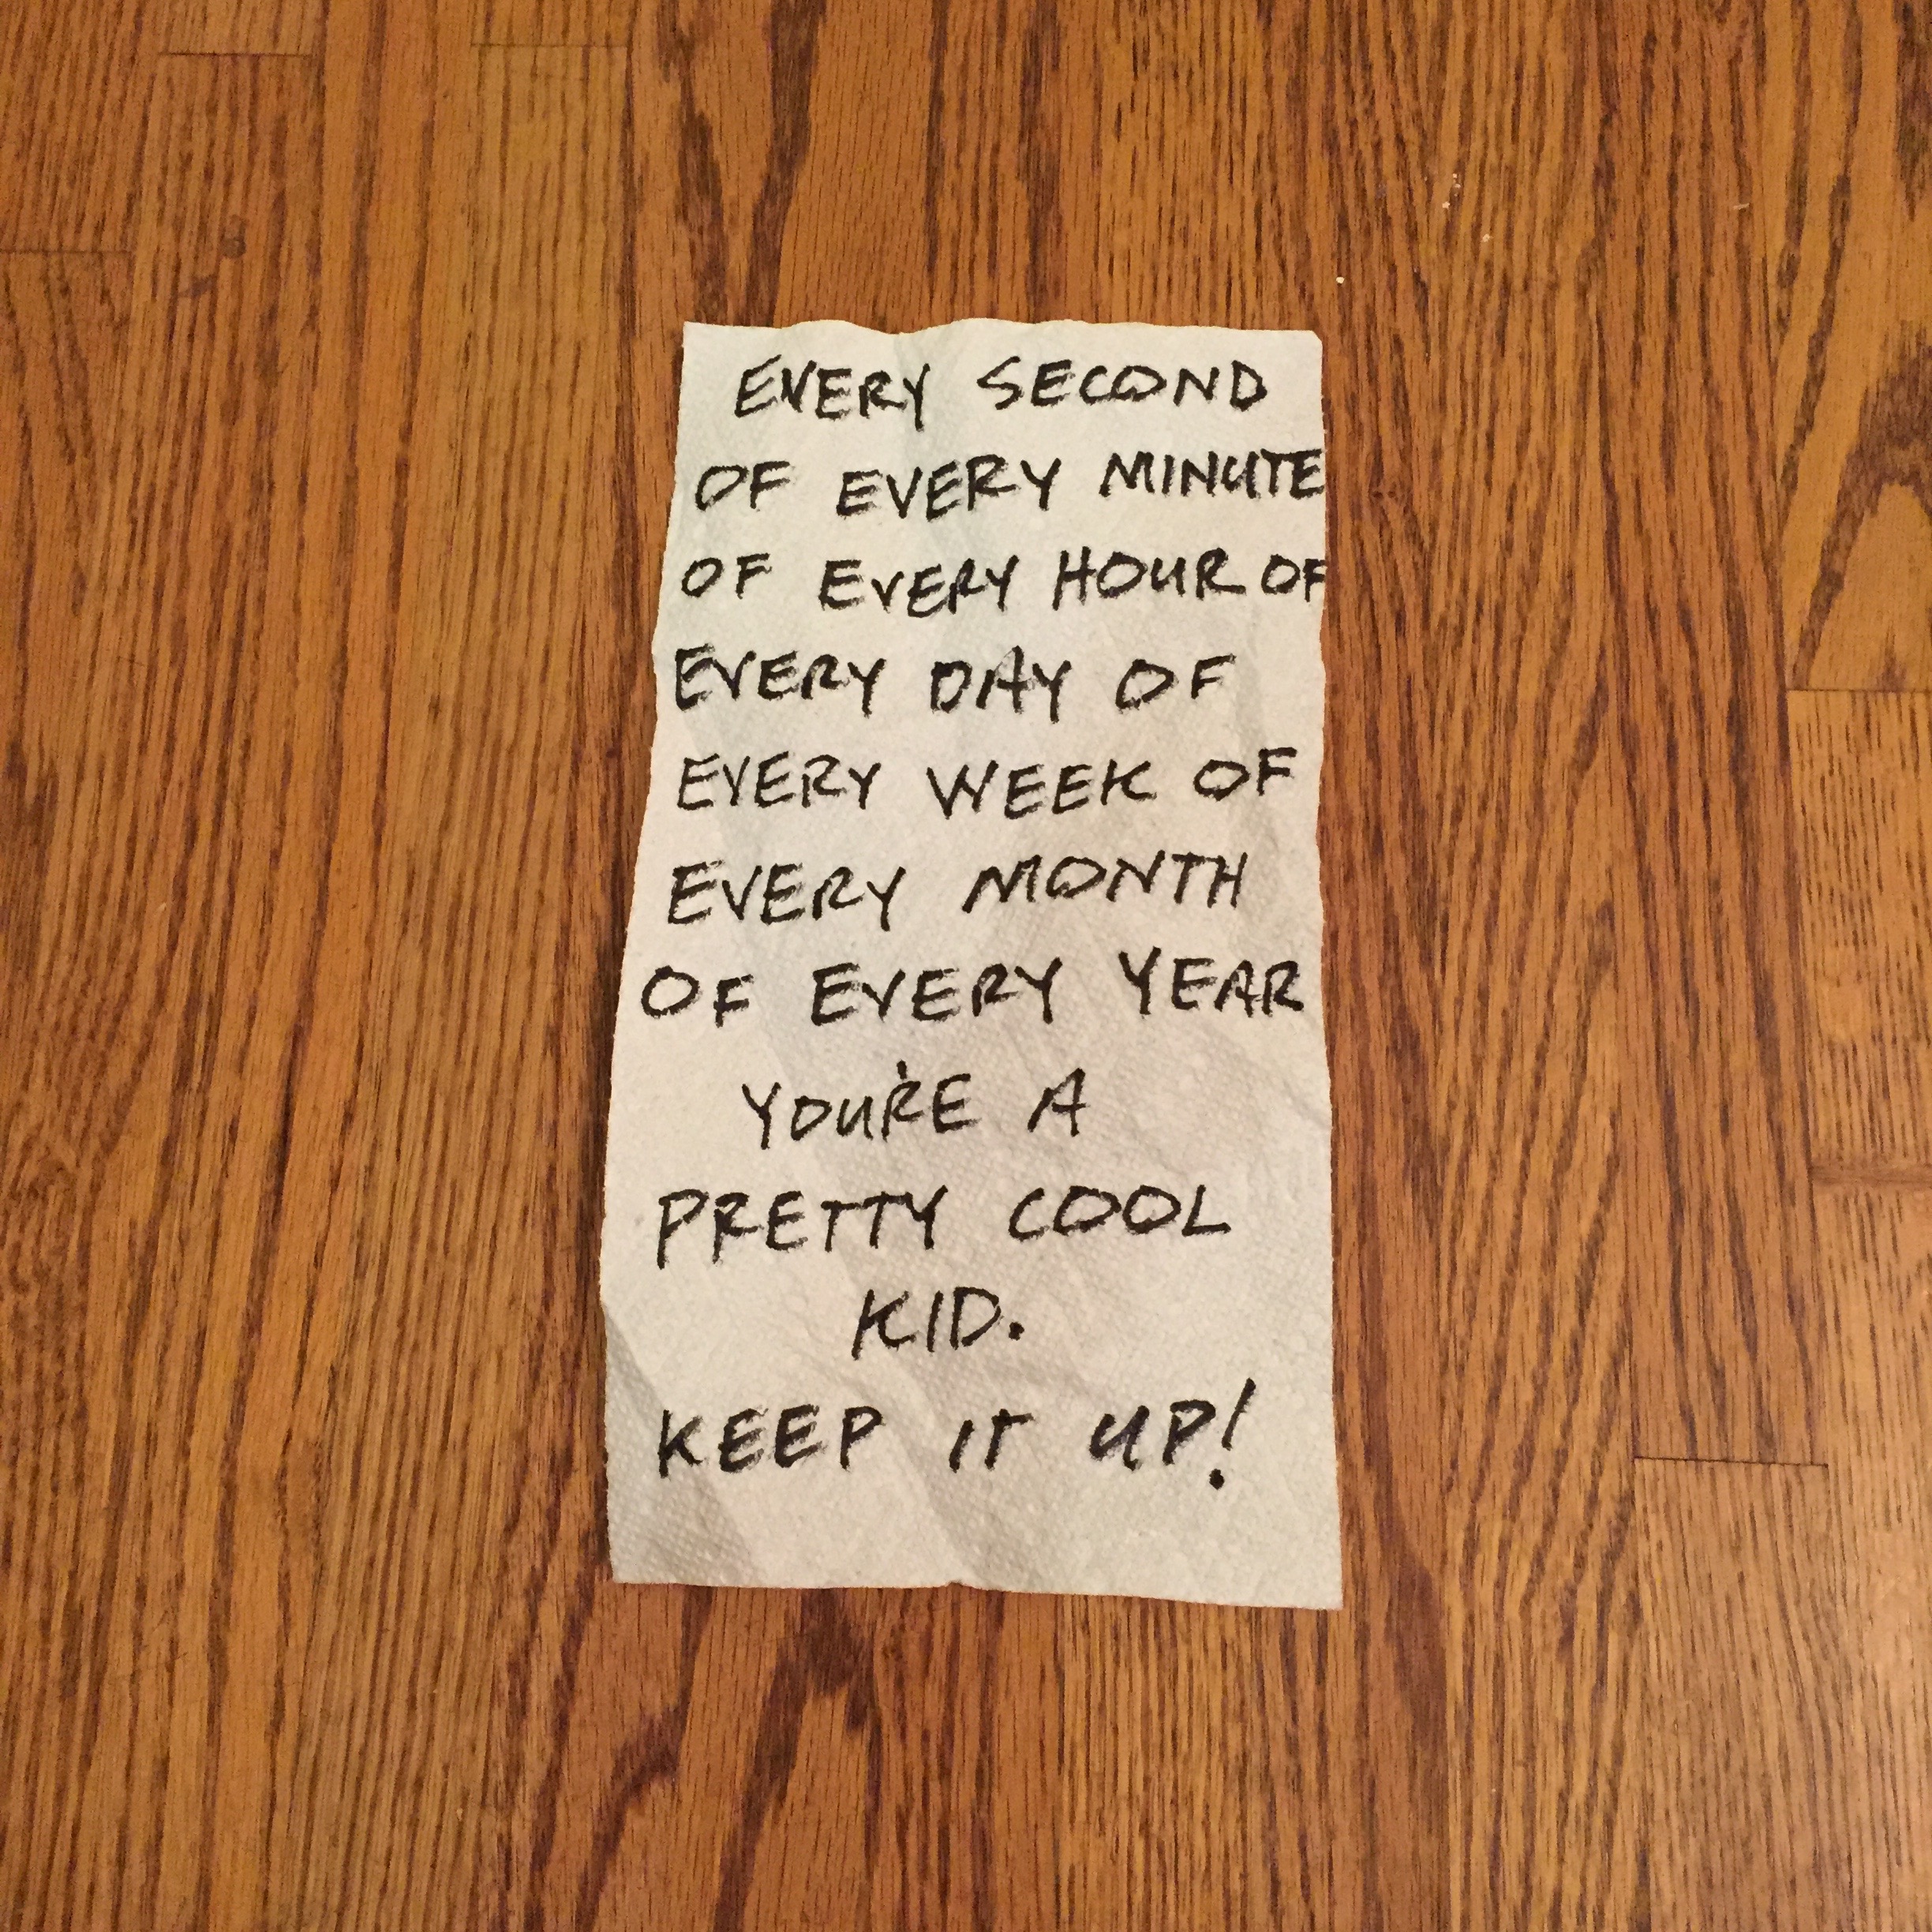 EVERY SECOND
OF EVERY MINUTE
OF EVERY HOUR OF
EVERY DAY OF
EVERY WEEK OF
EVERY MONTH
OF EVERY YEAR
YOU'RE A
PRETTY COOL
KID.
KEEP IT UP!